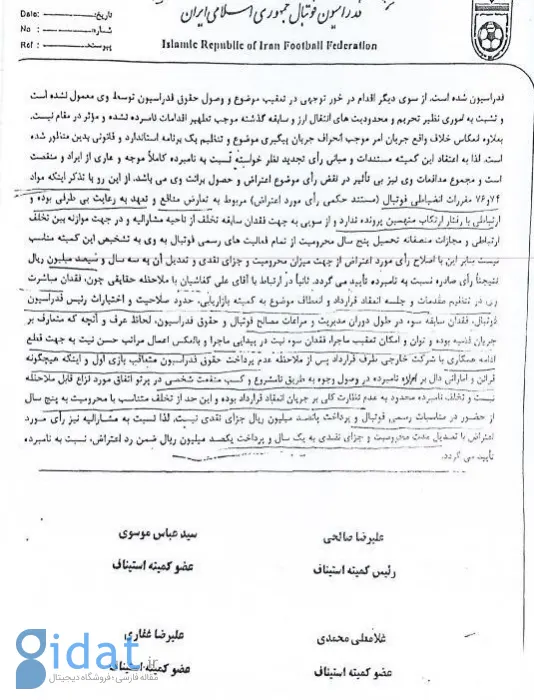 فدراسیون فوتبال جمهوری اسلامی ایران
Islamic Republic of Iran Football Federation
تاریخ:
Date:
شماره:
No :
پیوست:
Ref :
فدراسیون شده است. از سوی دیگر اقدام در خور توجهی در تعقیب موضوع و وصول حقوق فدراسیون توسط وی معمول نشده است
و نسبت به اموری نظیر تحریم و محدودیت های انتقال ارز و سابقه گذشته موجب تطهیر اقدامات نامبرده نشده و مؤثر در مقام نیست.
بعلاوه انعکاس خلاف واقع جریان امر موجب انحراف جریان پیگیری موضوع و تنظیم یک برنامه استاندارد و قانونی بدین منظور شده
است. لذا به اعتقاد این کمیته مستندات و مبانی رأی تجدید نظر خواسته نسبت به نامبرده کاملاً موجه و عاری از ایراد و منقصت
است و مجموع مدافعات وی نیز بی تأثیر در نقض رأی موضوع اعتراض و حصول برائت وی می باشد. از این رو با تذکر اینکه مواد
۷۴و ۷۶ مقررات انضباطی فوتبال (مستند حکمی رأی مورد اعتراض) مربوط به تعارض منافع و تعهد به رعایت بی طرفی بوده و
ارتباطی با رفتار ارتکاب متهمین پرونده ندارد و از سویی به جهت فقدان سابقه تخلف از ناحیه مشارالیه و در جهت موازنه بین تخلف
ارتباطی و مجازات منصفانه تحمیل پنج سال محرومیت از تمام فعالیت های رسمی فوتبال به وی به تشخیص این کمیته مناسب
نیست بنابر این با اصلاح رأی مورد اعتراض از جهت میزان محرومیت و جزای نقدی و تعدیل آن به سه سال و سیصد میلیون ریال
نتیجتاً رأی صادره نسبت به نامبرده تأیید می گردد. ثانیاً در ارتباط با آقای علی کفاشیان با ملاحظه حقایقی چون، فقدان مباشرت
وی در تنظیم مقدمات و جلسه انعقاد قرارداد و انعطاف موضوع به کمیته بازاریابی، حدود صلاحیت و اختیارات رئیس فدراسیون
فوتبال، فقدان سابقه سوء در طول دوران مدیریت و مراعات مصالح فوتبال و حقوق فدراسیون، لحاظ عرف و آنچه که متعارف بر
جریان قضیه بوده و توان و امکان تعقیب ماجرا، فقدان سوء نیت در پیدایی ماجرا و بالعکس اعمال مراتب حسن نیت به جهت قطع
ادامه همکاری با شرکت خارجی طرف قرارداد پس از ملاحظه عدم پرداخت حقوق فدراسیون متعاقب بازی اول و اینکه هیچگونه
قرائن و اماراتی دال بر اراده نامبرده در وصول وجوه به طریق نامشروع و کسب منفعت شخصی در پرتو اتفاق مورد نزاع قابل ملاحظه
نیست و تخلف نامبرده محدود به عدم نظارت کلی بر جریان انعقاد قرارداد بوده و این حد از تخلف متناسب با محرومیت به پنج سال
از حضور در مناسبات رسمی فوتبال و پرداخت پانصد میلیون ریال جزای نقدی نیست. لذا نسبت به مشارالیه نیز رأی مورد
اعتراض با تعدیل مدت محرومیت و جزای نقدی به یک سال و پرداخت یکصد میلیون ریال ضمن رد اعتراض، نسبت به نامبرده
تأیید می گردد.
علیرضا صالحی
رئیس کمیته استیناف
سید عباس موسوی
عضو کمیته استیناف
غلامعلی محمدی
عضو کمیته استیناف
علیرضا غفاری
عضو کمیته استیناف
gidat
مقاله فارسی؛ فروشگاه دیجیتال